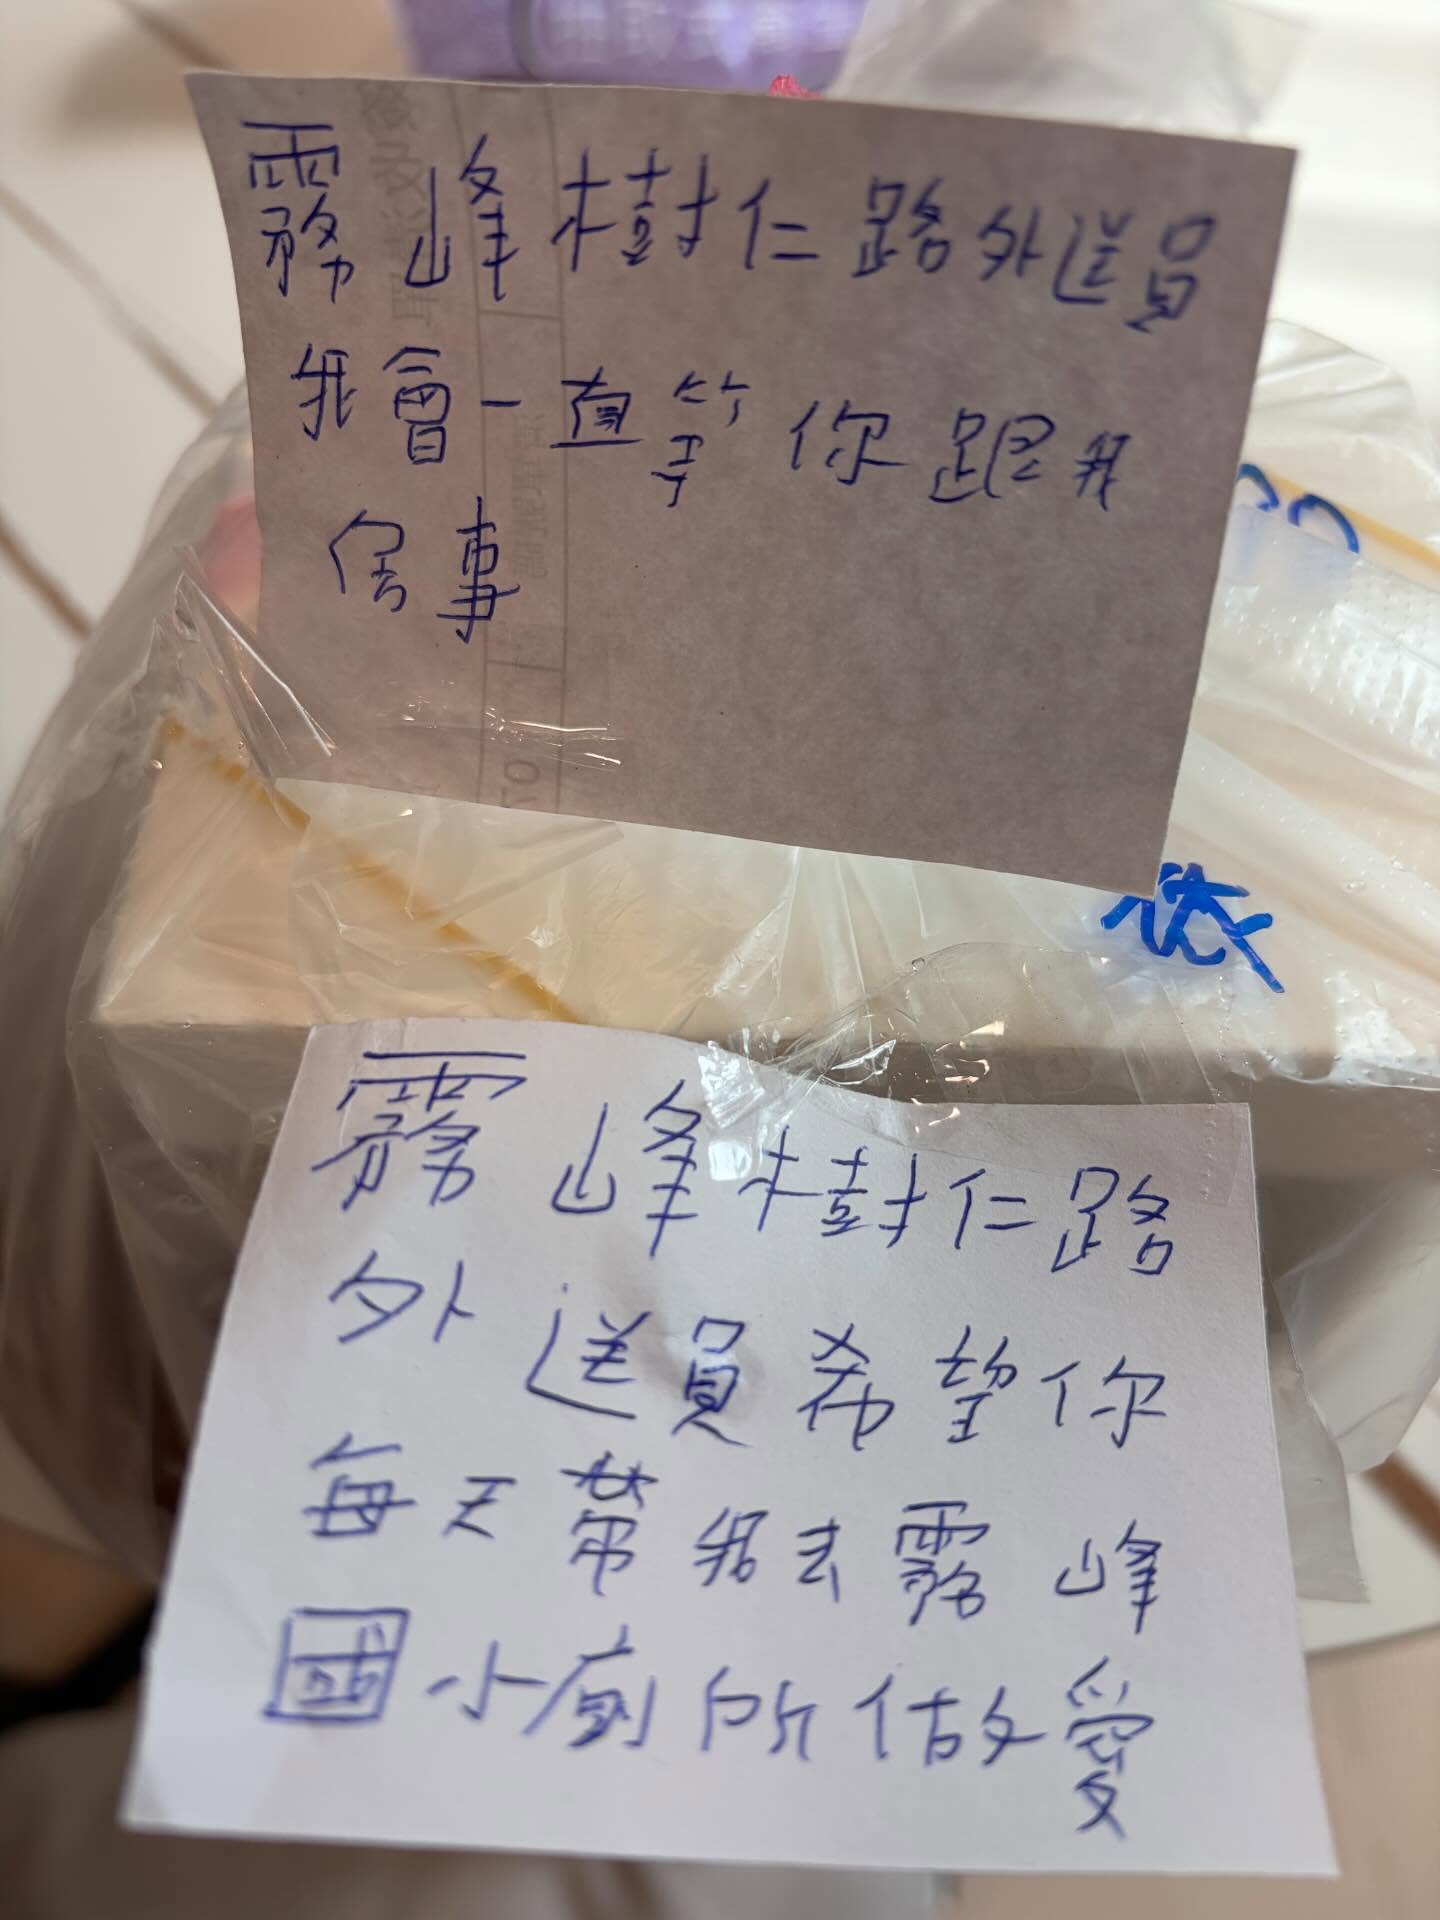 霧峰樹仁路外送員
我會一直等你跟我
倌事
依
霧峰樹仁路
外送員希望你
每天帶我去霧峰
國小廁所做愛